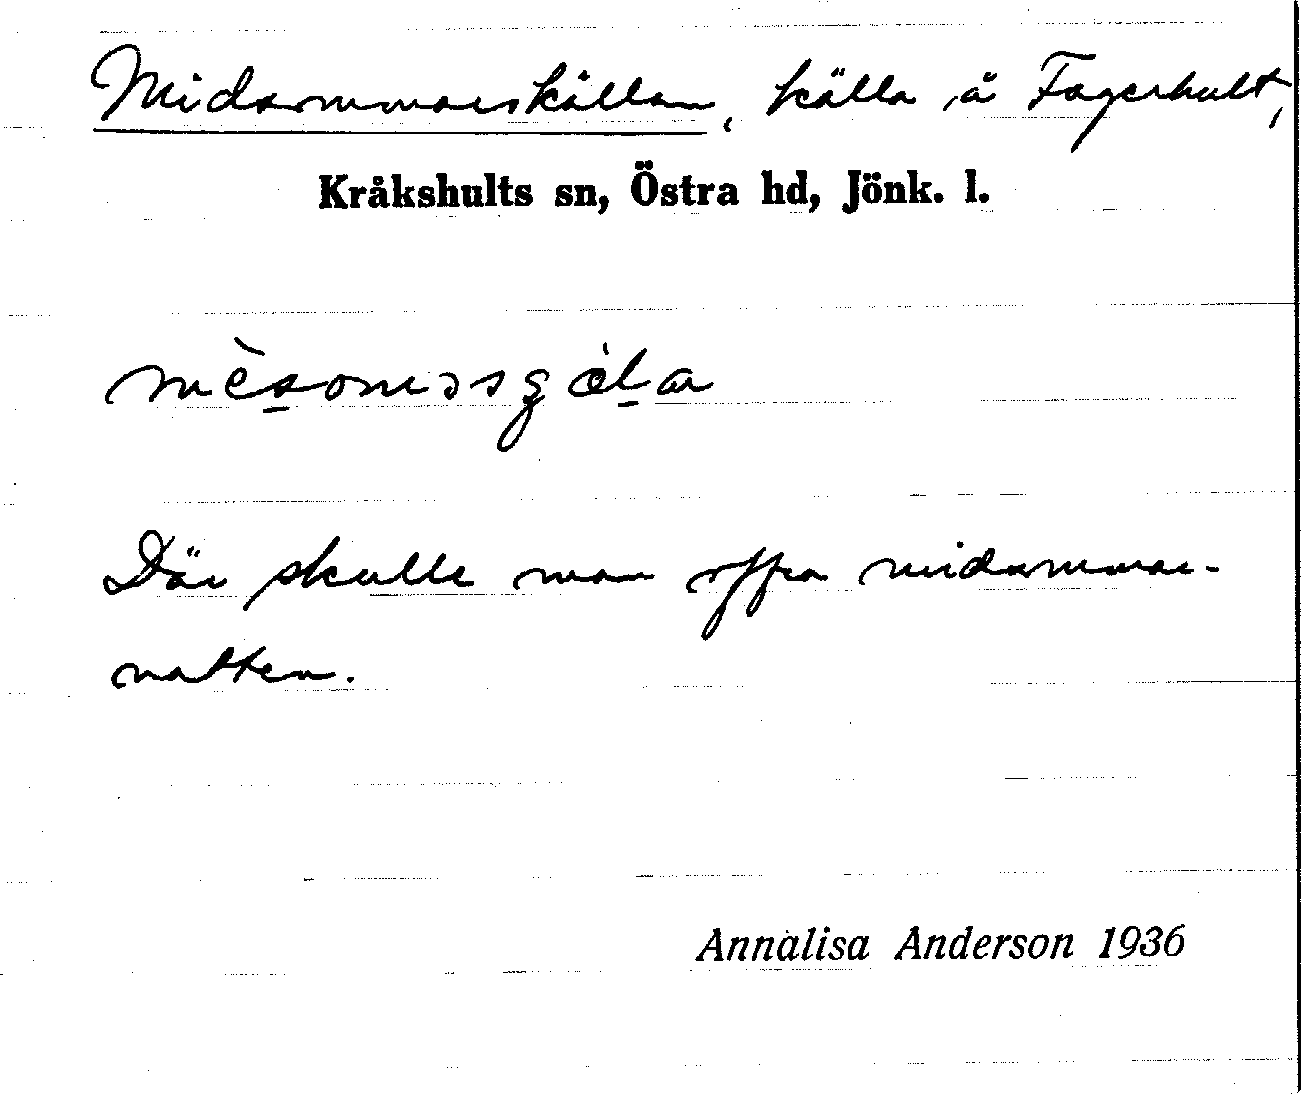 Midsommarskällan, källa å Fagerhult,
Kråkshults sn, Östra hd, Jönk. l.
Där skulle man offra midsommar-
natten.
Annalisa Anderson 1936